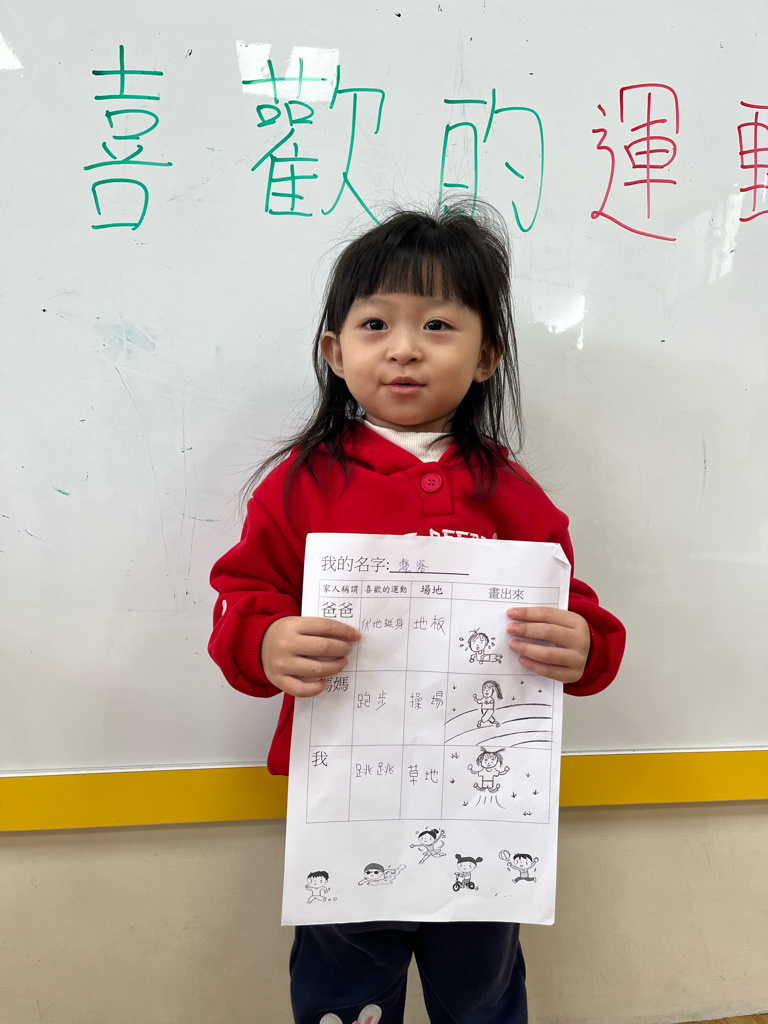 喜歡的運動
我的名字:
家人稱謂 喜歡的運動 場地 畫出來
爸爸 伏地挺身 地板
媽媽 跑步 操場
我 跳跳 草地